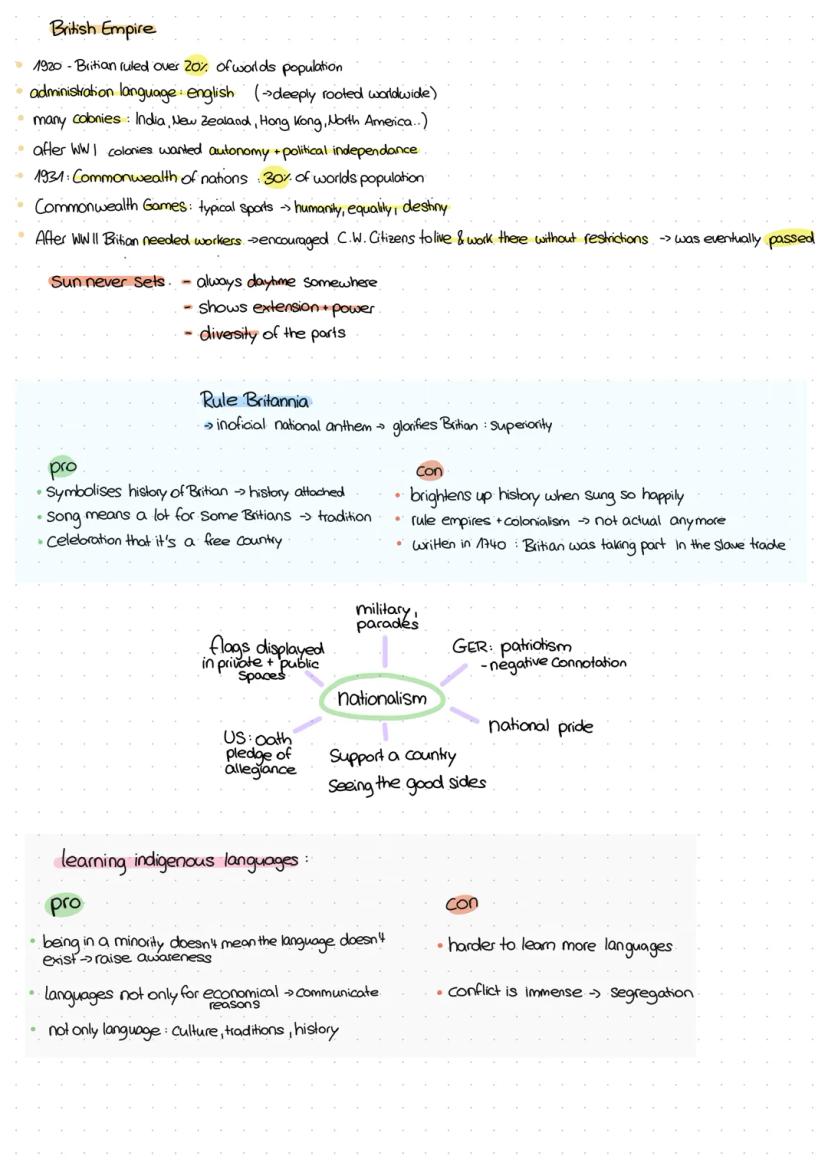 British Empire
1920 - Britian ruled over 20% of worlds population
administration language: english (→deeply rooted worldwide)
many colonies : India, New Zealand, Hong Kong, North America..)
after WW I colonies wanted autonomy + political independance
1931: Commonwealth of nations : 30% of worlds population
Commonwealth Games: typical sports → humanity, equality, destiny
After WW II Britian needed workers →encouraged C.W. Citizens to live & work there without restrictions → was eventually passed
Sun never sets. - always daytime somewhere
- shows extension + power
- diversity of the parts
Rule Britannia
→ inoficial national anthem → glorifies Britian : superiority
pro
• symbolises history of Britian → history attached
• song means a lot for some Britians → tradition
• Celebration that it's a free country
con
• brightens up history when sung so happily
• rule empires + colonialism → not actual anymore
• written in 1740 : Britian was taking part in the slave trade
military,
parades
flags displayed
in private + public
spaces
GER: patriotism
- negative connotation
nationalism
national pride
US: oath
pledge of
allegiance
Support a country
Seeing the good sides
learning indigenous languages :
pro
• being in a minority doesn't mean the language doesn't
exist → raise awareness
• languages not only for economical → communicate
reasons
• not only language : culture, traditions, history
con
• harder to learn more languages
• conflict is immense → segregation